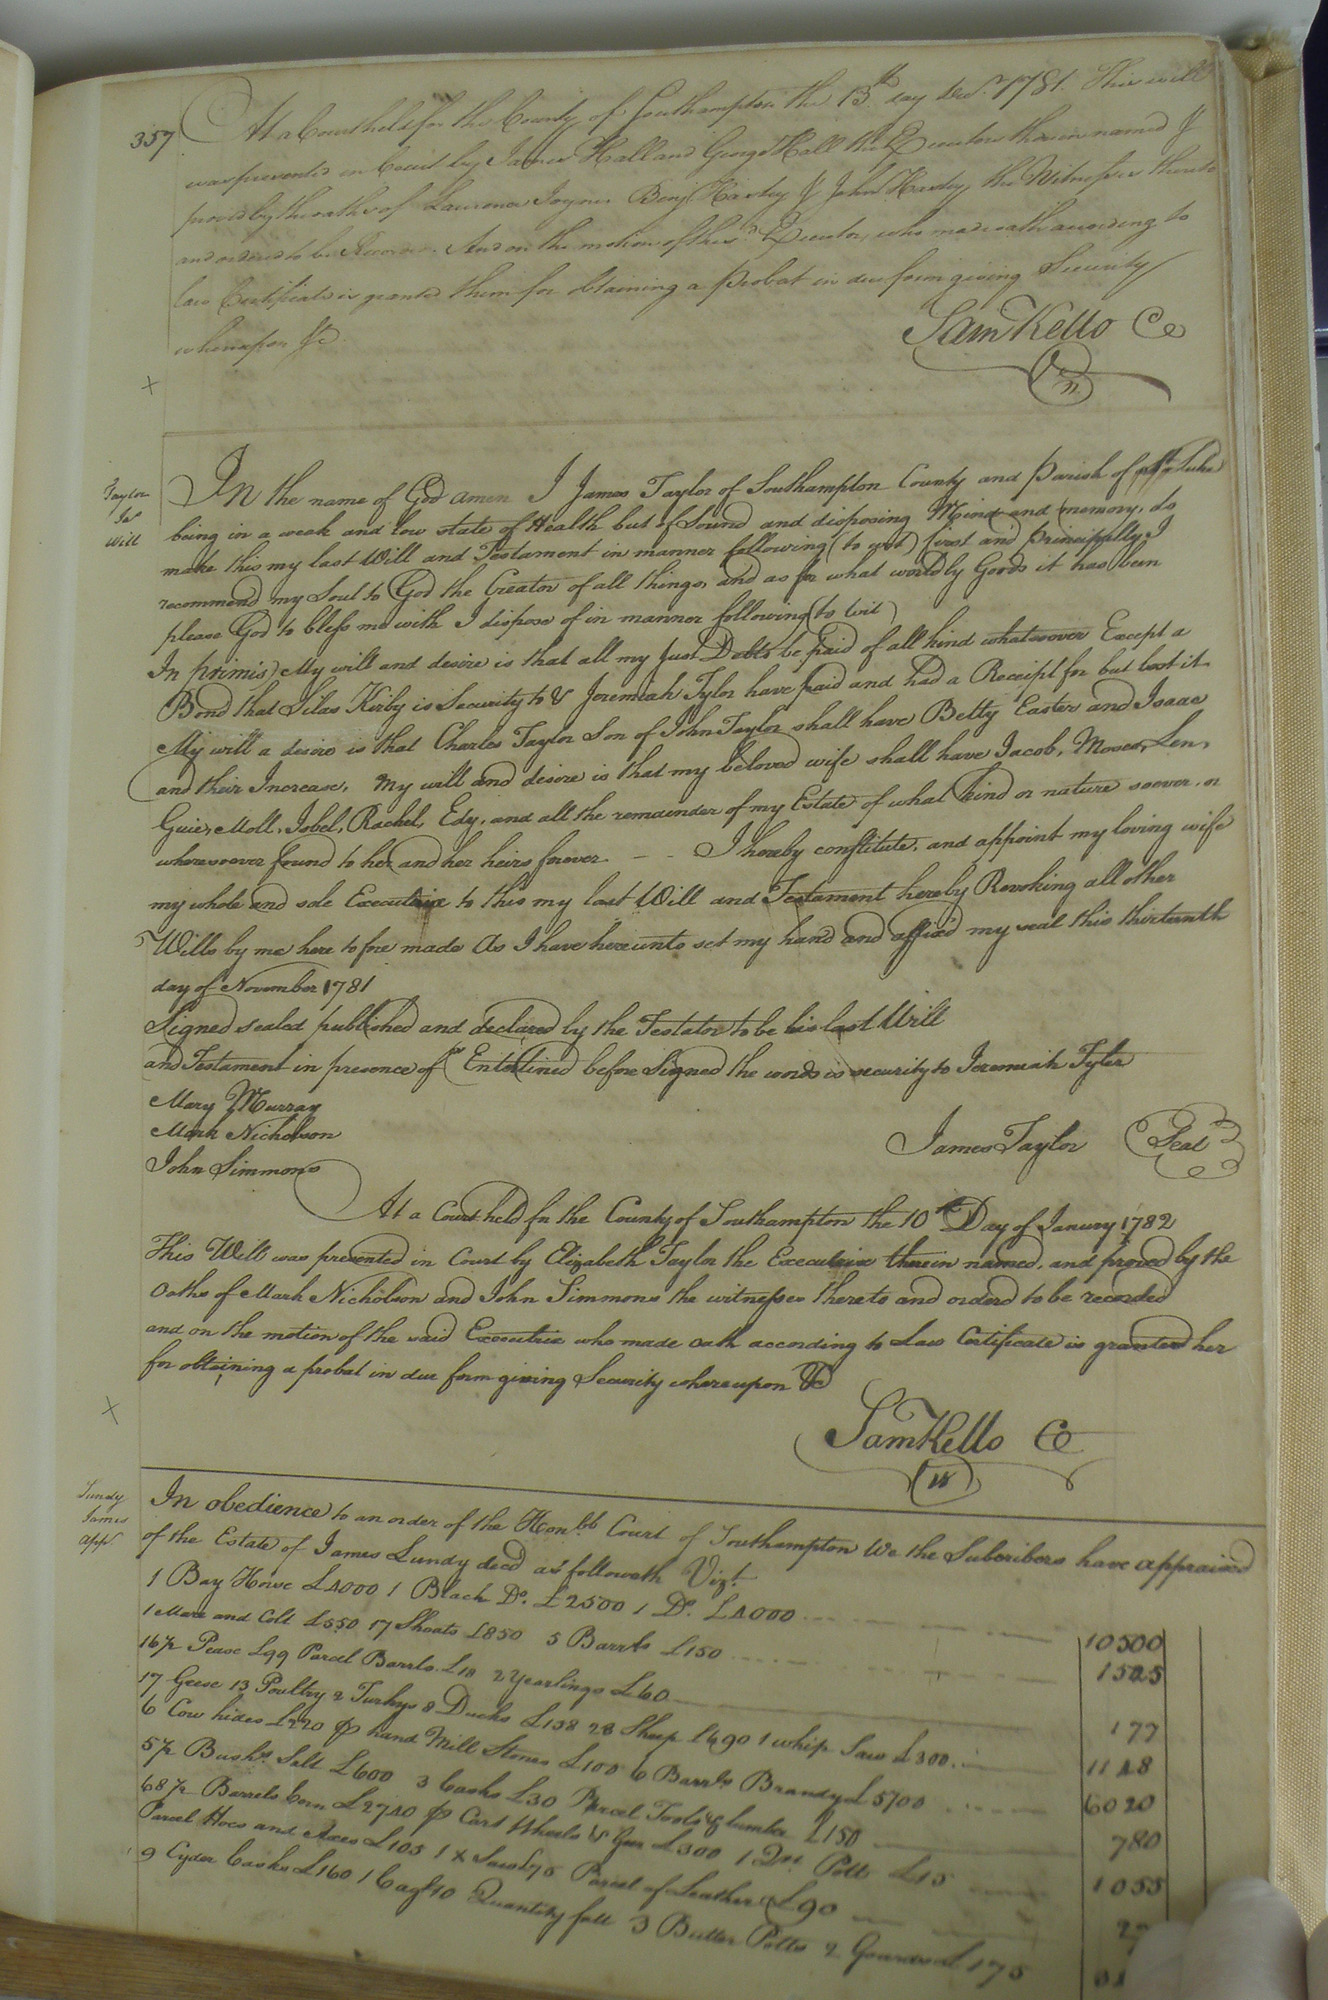 357
At a Court held for the County of Southampton the 13th day Decr. 1781. This will
was presented in Court by James Hall and George Hall the Executors therein named &
proved by the oaths of Laurence Joyner Benj Harty & John Harty the Witnesses thereto
and ordered to be Recorded. And on the motion of the sd Executors, who made oath according to
law Certificate is granted them for obtaining a Probat in due form giving Security
whereupon &c.
Sam Kello Ce
x
Taylor
Js
Will
In the name of God amen I James Taylor of Southampton County and Parish of Luke
being in a weak and low state of Health but of Sound and disposing Mind and memory, do
make this my last Will and Testament in manner following (to wit) first and principally I
recommend my Soul to God the Creator of all things, and as for what worldly Goods it has been
please God to bless me with I dispose of in manner following (to wit)
In primis) My will and desire is that all my Just Debts be paid of all kind whatsoever Except a
Bond that Silas Kirby is Security to & Jeremiah Tylor have paid and had a Receipt for but lost it
My will a desire is that Charles Taylor Son of John Taylor shall have Betty Easter and Isaac
and their Increase, My will and desire is that my beloved wife shall have Jacob, Moses, Len,
Guie, Moll, Isbel, Rachel, Edy, and all the remainder of my Estate of what kind or nature soever, or
wheresoever found to her and her heirs forever - - I hereby constitute, and appoint my loving wife
my whole and sole Executrix to this my last Will and Testament hereby Revoking all other
Wills by me here to fore made As I have hereunto set my hand and affixd my seal this thirteenth
day of November 1781
Signed sealed published and declared by the Testator to be his last Will
and Testament in presence of Enterlined before Signed the words is security to Jeremiah Tyler
Mary Murray
Mark Nicholson
John Simmons
James Taylor Seal
At a Court held for the County of Southampton the 10th Day of Janury 1782
This Will was presented in Court by Elizabeth Taylor the Executrix therein named, and proved by the
Oaths of Mark Nicholson and John Simmons the witnesses thereto and orderd to be recorded
and on the motion of the said Executrix who made oath according to Law Certificate is granted her
for obtaining a probat in due form giving Security whereupon &c
Sam Kello Ce
x
Lundy
James
app.
In obedience to an order of the Honble Court of Southampton We the Subcribers have appraised
of the Estate of James Lundy decd as followeth Vizt.
1 Bay Horse £4000 1 Black Do. £2500 1 Do. £4000 10500
1 Mare and Colt £550 17 Shoats £850 5 Barrls £150 1525
16½ Pease £99 Parcel Barrls £18 2 Yearlings £60 177
17 Geese 13 Poultry 2 Turkys 8 Ducks £158 28 Sheep £690 1 whip Saw £300 1148
6 Cow hides £220 pr hand Mill Stones £100 6 Barrls Brandy £5700 6020
5½ Bushs Salt £600 3 Casks £30 Parcel Tools & lumber £150 780
68½ Barrels Corn £2740 pr Cart Wheels & Gear £300 1 Potts £15 1055
Parcel Hoes and Axes £105 1 X Saw £75 Parcel of Leather £90
9 Cyder Casks £160 1 Cag £10 Quantity fatt 3 Butter Potts 2 Gourds £175